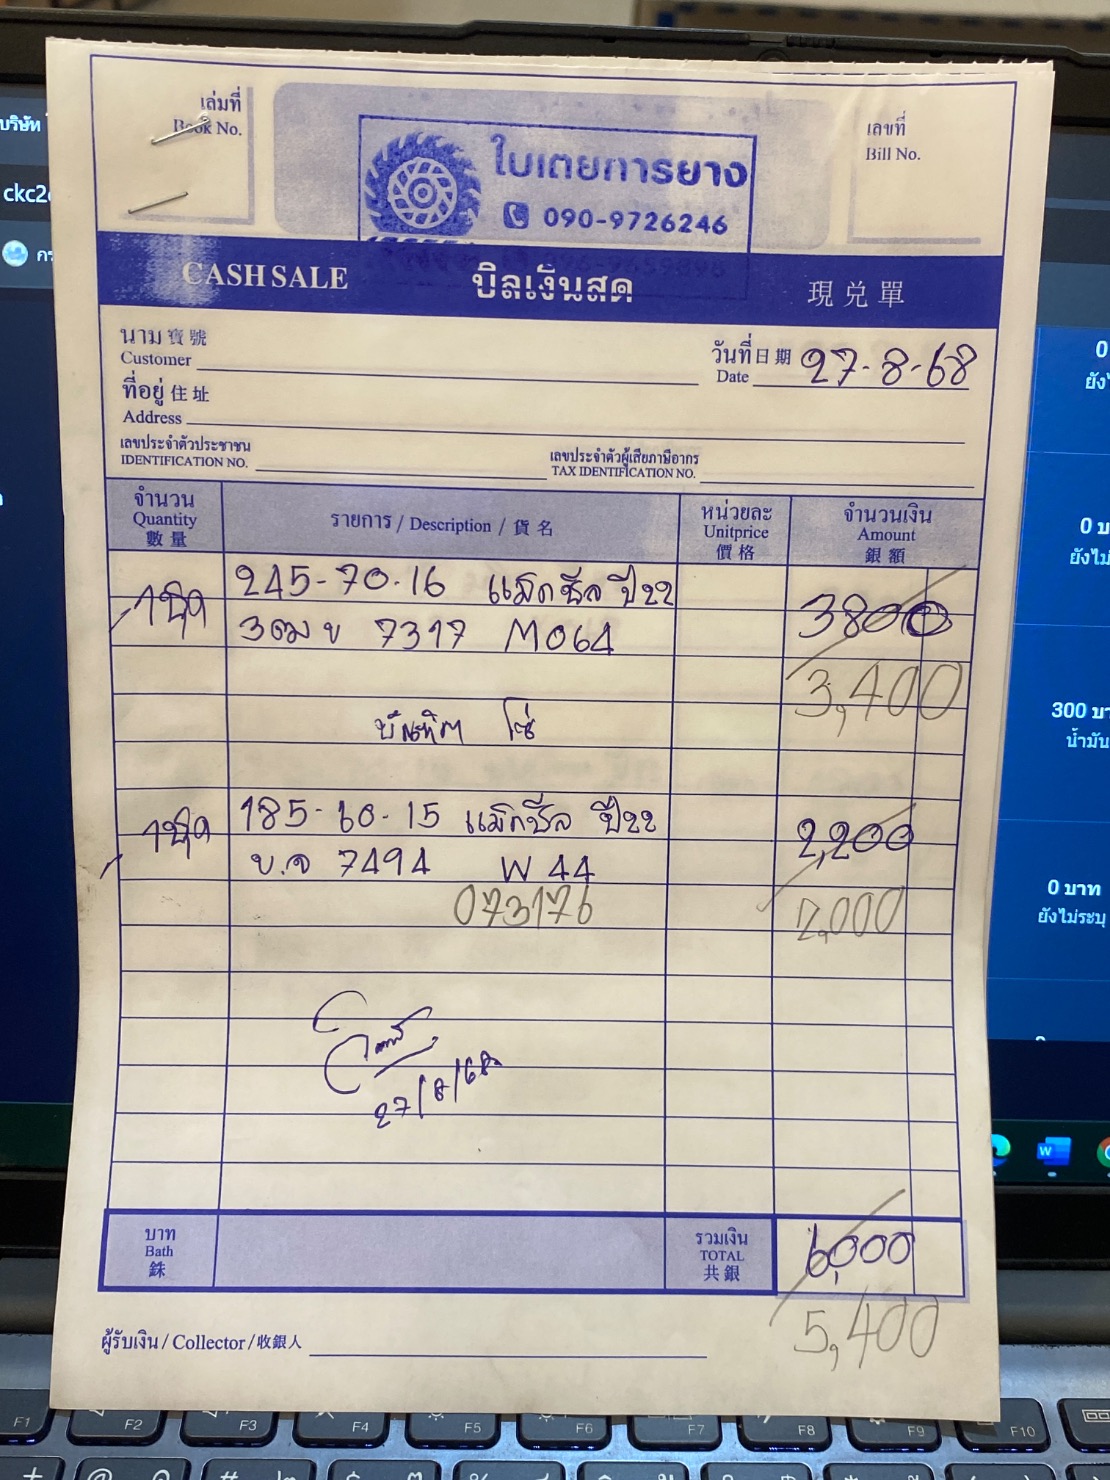 เล่มที่
Book No.
ใบเตยการยาง
090-9726246
เลขที่
Bill No.
CASH SALE บิลเงินสด 現兌單
นาม 寶號
Customer
วันที่ 日期 27-8-68
Date
ที่อยู่ 住址
Address
เลขประจำตัวประชาชน
IDENTIFICATION NO.
เลขประจำตัวผู้เสียภาษีอากร
TAX IDENTIFICATION NO.
จำนวน
Quantity
數量
รายการ / Description / 貨名
หน่วยละ
Unitprice
價格
จำนวนเงิน
Amount
銀額
245-70-16 แม็กซีส ปี22
1ชุด 3800
3ฒข 7317 M064
3,400
185-60-15 แม็กซีส ปี22
1ชุด 2,200
ข.จ 7494 W 44
073176 2,000
27/8/68
บาท
Bath
銖
รวมเงิน
TOTAL
共銀
6,000
5,400
ผู้รับเงิน / Collector / 收銀人
บริษัท
ckc2
0
0 บ
300 บา
น้ำมัน
0 บาท
ยังไม่ระบุ
F1
F2
F3
F4
F5
F6
F7
F8
F9
F10